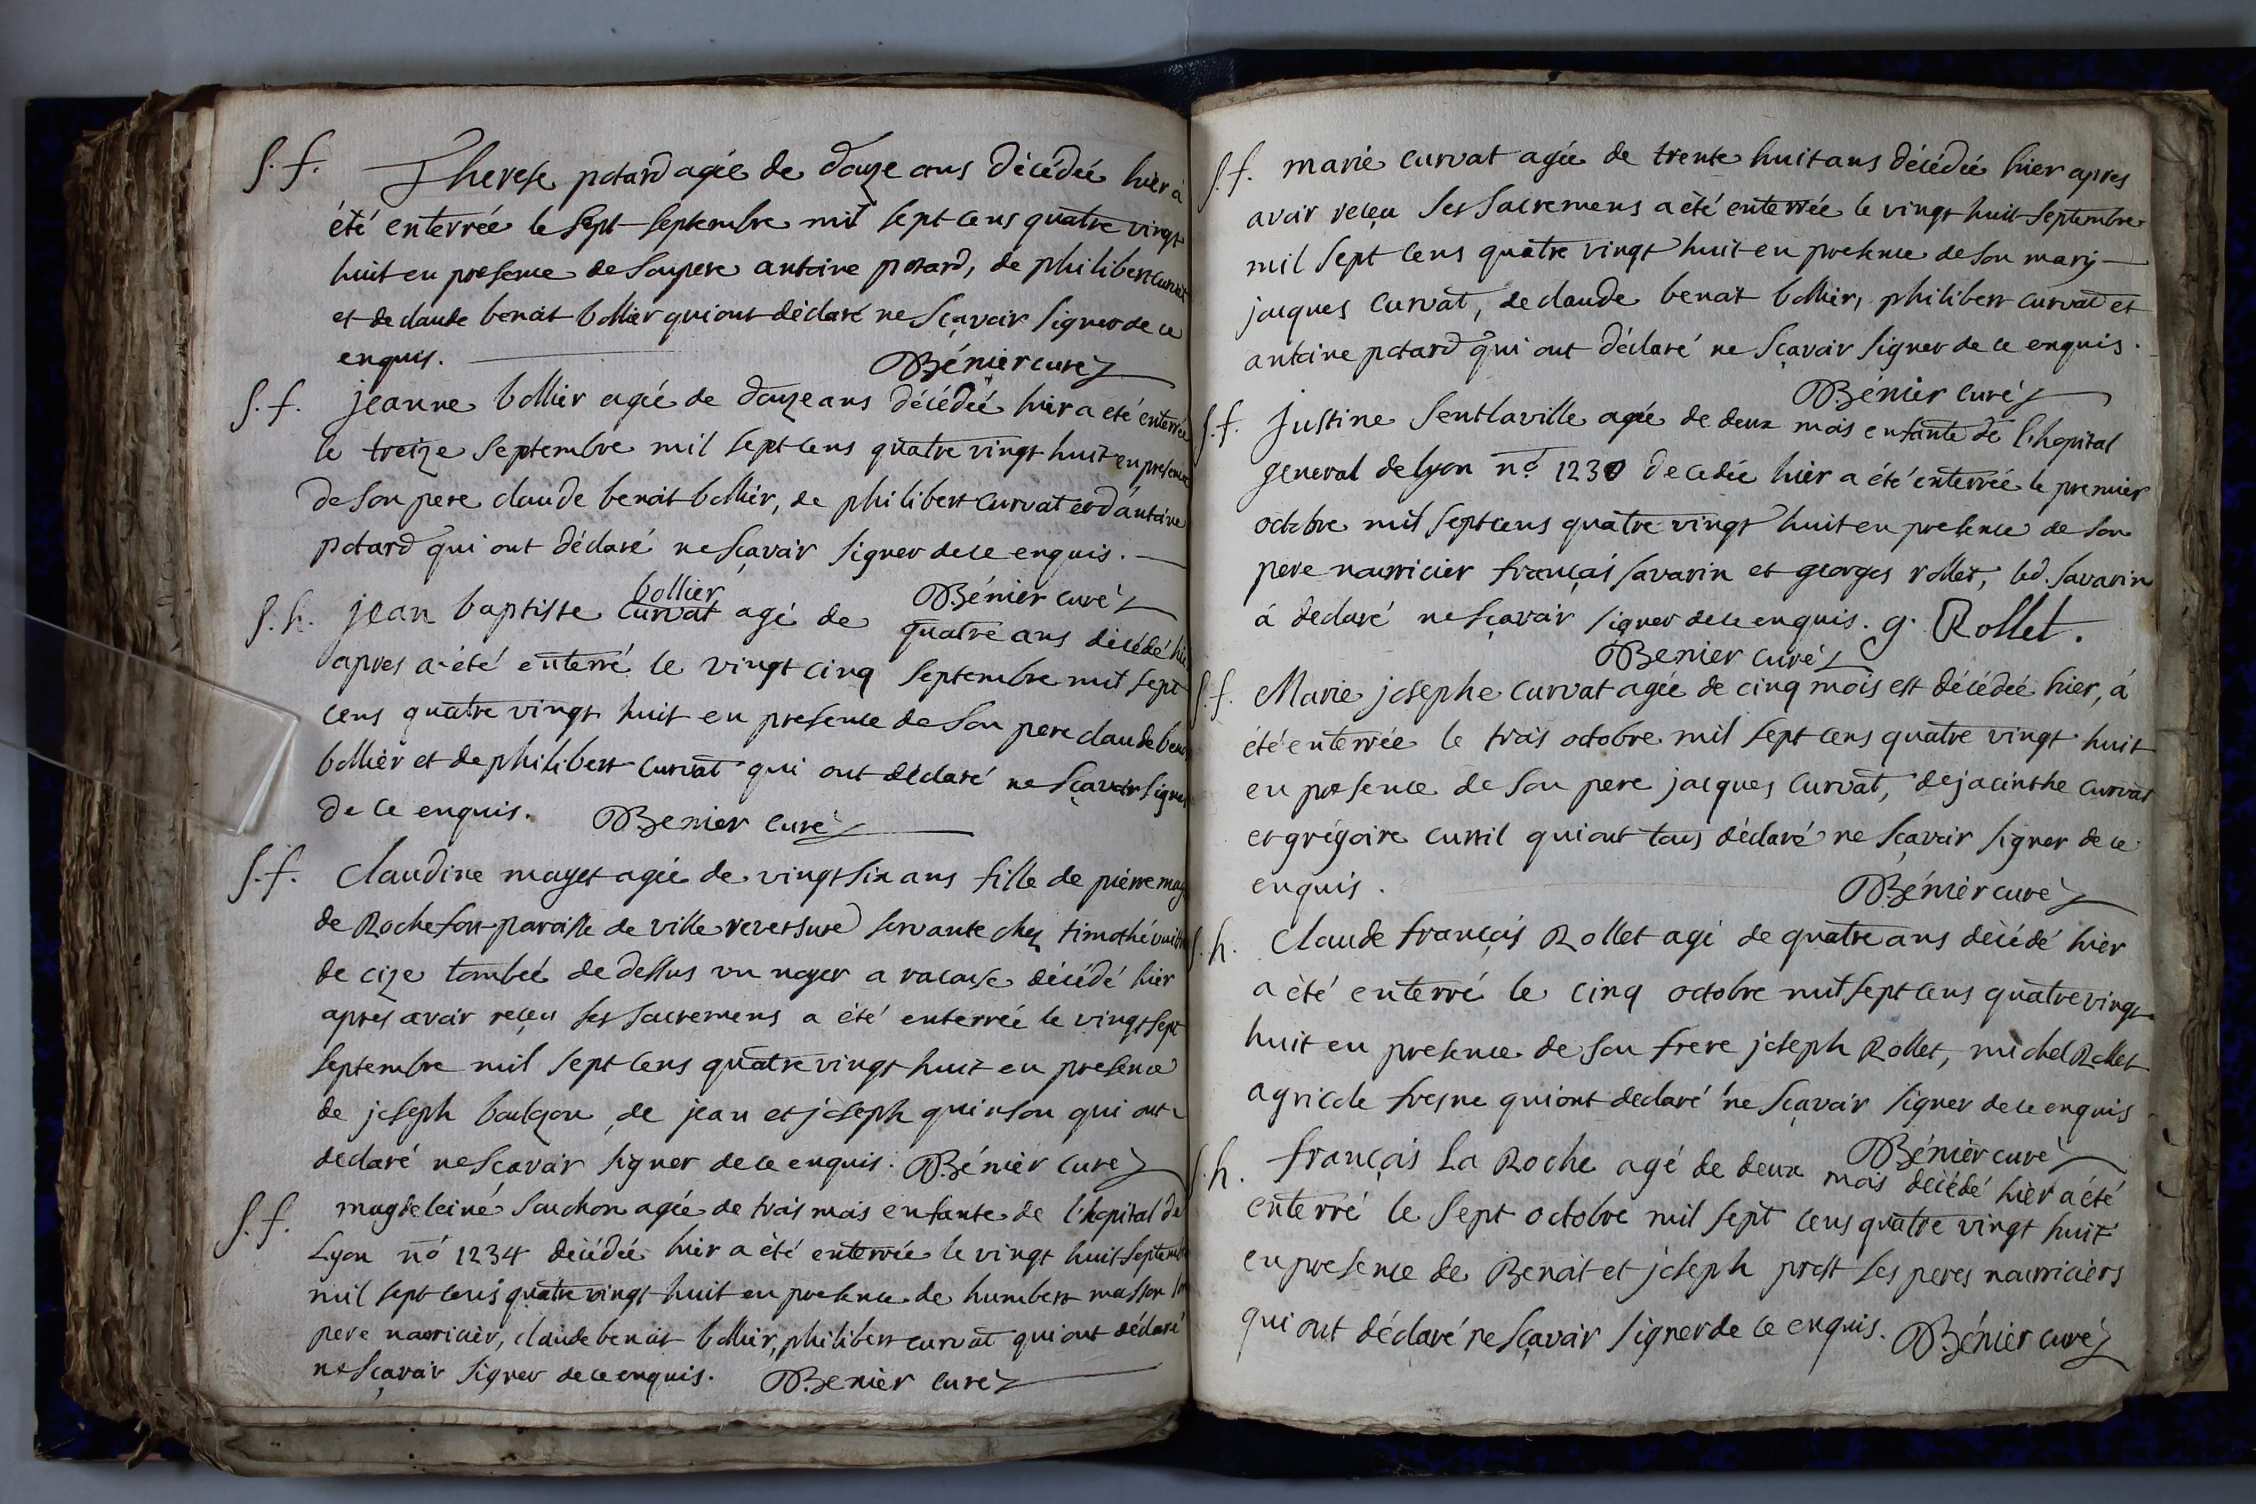 S. f. Therese potard agée de douze ans décédée hier à
été enterrée le sept septembre mil sept cens quatre vingt
huit en presence de son pere antoine potard, de philibert curvat
et de claude benoit bollier qui ont déclaré ne sçavoir signer de ce
enquis.
Bénier curé
S. f. jeanne bollier agée de douze ans décédée hier a eté enterrée
le treize septembre mil sept cens quatre vingt huit en presence
de son pere claude benoit bollier, de philibert curvat et d'antoine
potard qui ont déclaré ne sçavoir signer de ce enquis.
Bénier curé
bollier
S. h. jean baptiste curvat agé de quatre ans décédé hier
apres a été enterré le vingt cinq septembre mil sept
cens quatre vingt huit en presence de son pere claude benoit
bollier et de philibert curvat qui ont déclaré ne sçavoir signer
de ce enquis. Benier curé
S. f. Claudine mayet agée de vingt six ans fille de pierre
de Rochefort paroisse de ville reversure servante chez timothé
de cize tombée de dessus un noyer a décédé hier
apres avoir reçeu ses sacremens a été enterrée le vingt sept
septembre mil sept cens quatre vingt huit en presence
de joseph boulgon, de jean et joseph quinson qui ont
declaré ne scavoir signer de ce enquis. Bénier curé
S. f. magdeleine souchon agée de trois mois enfante de l'hopital de
Lyon nó 1234 décédée hier a été enterrée le vingt huit septembre
mil sept cens quatre vingt huit en presence de humbert masson son
pere nourricier, claude benoit bollier, philibert curvat qui ont déclaré
ne sçavoir signer de ce enquis. Benier curé
S. f. marie curvat agée de trente huit ans décédée hier apres
avoir reçeu ses sacremens a été enterrée le vingt huit septembre
mil sept cens quatre vingt huit en presence de son mary
jacques curvat, de claude benoit bollier, philibert curvat et
antoine potard qui ont déclaré ne sçavoir signer de ce enquis.
Bénier curé
S. f. Justine sentlaville agée de deux mois enfante de l'hopital
general de lyon nó 1230 decedée hier a été enterrée le premier
octobre mil sept cens quatre vingt huit en presence de son
pere nourricier françois savarin et georges rollet, led. savarin
á declaré ne sçavoir signer de ce enquis. g. Rollet.
Benier curé
S. f. Marie josephe curvat agée de cinq mois est décédée hier, á
été enterrée le trois octobre mil sept cens quatre vingt huit
en presence de son pere jacques curvat, de jacinthe curvat
et grégoire curtil qui ont tous déclaré ne sçavoir signer de ce
enquis.
Bénier curé
S. h. Claude françois Rollet agé de quatre ans décédé hier
a été enterré le cinq octobre mil sept cens quatre vingt
huit en presence de son frere joseph Rollet, michel Rollet
agricole fresne qui ont declaré ne sçavoir signer de ce enquis
Bénier curé
S. h. françois La Roche agé de deux mois décédé hier a été
enterré le sept octobre mil sept cens quatre vingt huit
en presence de Benoit et joseph prost ses peres nourriciers
qui ont déclaré ne sçavoir signer de ce enquis. Bénier curé